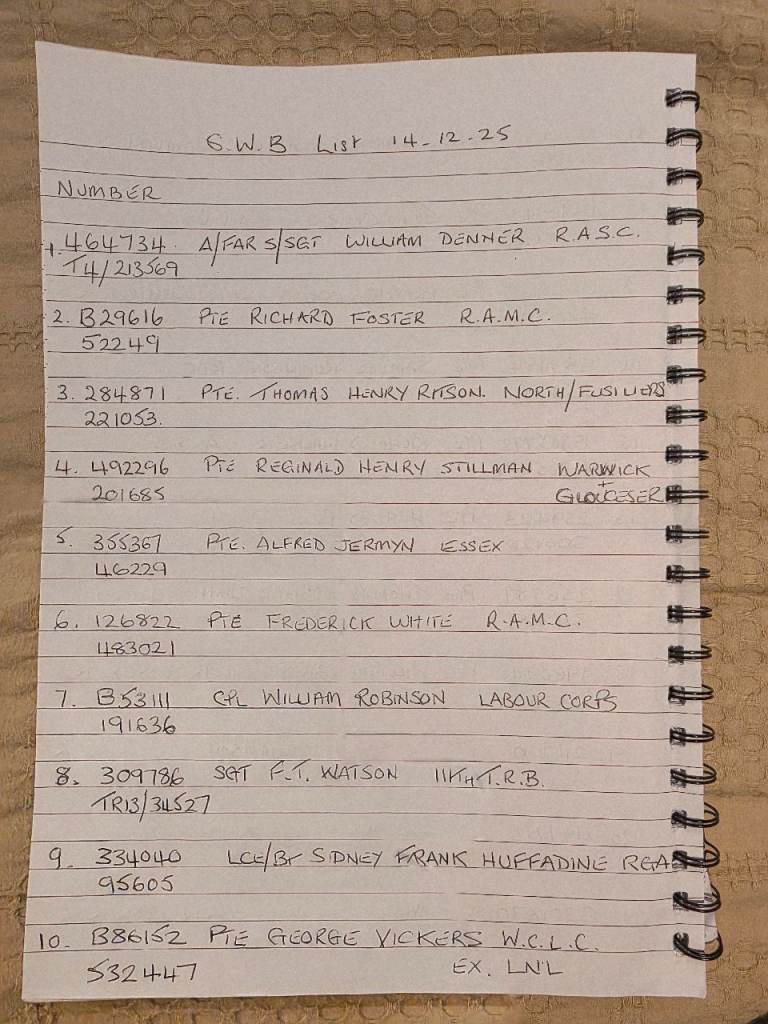 S.W.B List 14-12-25
NUMBER
1. 464734. A/FAR S/SGT WILLIAM DENNER R.A.S.C.
T4/213569
2. B29616 PTE RICHARD FOSTER R.A.M.C.
52249
3. 284871 PTE. THOMAS HENRY RITSON. NORTH/FUSILIERS
221053.
4. 492296 PTE REGINALD HENRY STILLMAN WARWICK
+
201685 GLOUCESER
5. 355367 PTE. ALFRED JERMYN ESSEX
46229
6. 126822 PTE FREDERICK WHITE R.A.M.C.
483021
7. B53111 CPL WILLIAM ROBINSON LABOUR CORPS
191636
8. 309786 SGT F.T. WATSON 11TH T.R.B.
TR13/34527
9. 334040 LCE/Br SIDNEY FRANK HUFFADINE RGA
95605
10. B86152 PTE GEORGE VICKERS W.C.L.C.
532447 EX. LN'L